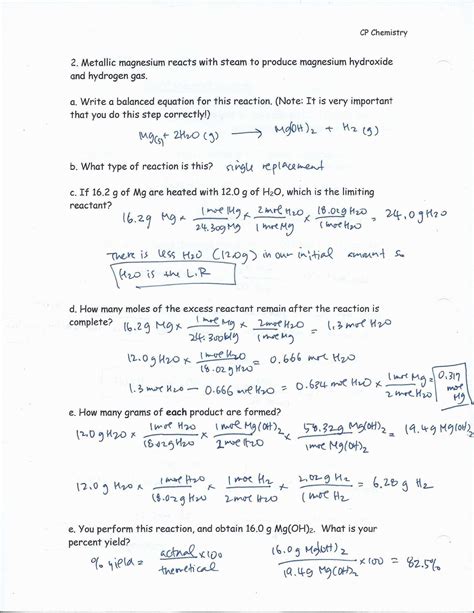 CP Chemistry
2. Metallic magnesium reacts with steam to produce magnesium hydroxide
and hydrogen gas.
a. Write a balanced equation for this reaction. (Note: It is very important
that you do this step correctly!)
Mg(s) + 2H₂O (g) ⟶ Mg(OH)₂ + H₂ (g)
b. What type of reaction is this? single replacement
c. If 16.2 g of Mg are heated with 12.0 g of H₂O, which is the limiting
reactant?
16.2g Mg × 1 mol Mg / 24.30g Mg × 2 mol H₂O / 1 mol Mg × 18.02g H₂O / 1 mol H₂O = 24.0g H₂O
There is less H₂O (12.0g) in our initial amount so
H₂O is the L.R
d. How many moles of the excess reactant remain after the reaction is
complete? 16.2g Mg × 1 mol Mg / 24.300g Mg × 2 mol H₂O / 1 mol Mg = 1.3 mol H₂O
12.0g H₂O × 1 mol H₂O / 18.02g H₂O = 0.666 mol H₂O
1.3 mol H₂O – 0.666 mol H₂O = 0.634 mol H₂O × 1 mol Mg / 2 mol H₂O = 0.317 mol Mg
e. How many grams of each product are formed?
12.0g H₂O × 1 mol H₂O / 18.02g H₂O × 1 mol Mg(OH)₂ / 2 mol H₂O × 58.32g Mg(OH)₂ / 1 mol Mg(OH)₂ = 19.4g Mg(OH)₂
12.0g H₂O × 1 mol H₂O / 18.02g H₂O × 1 mol H₂ / 2 mol H₂O × 2.02g H₂ / 1 mol H₂ = 6.28g H₂
e. You perform this reaction, and obtain 16.0 g Mg(OH)₂. What is your
percent yield?
% yield = actual / theoretical × 100
16.0g Mg(OH)₂ / 19.4g Mg(OH)₂ × 100 = 82.5%